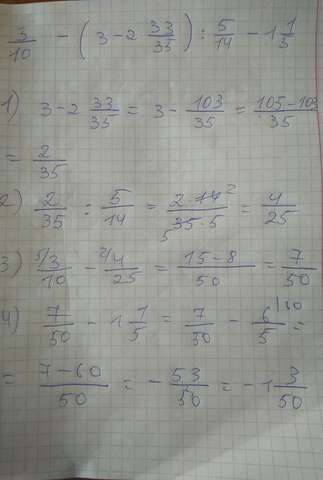 3/10 - (3-2 33/35) : 5/14 - 1 1/3
1) 3-2 33/35 = 3- 103/35 = 105-103/35
= 2/35
2) 2/35 : 5/14 = 2·14 2/5 35·5 = 4/25
3) 5/3/10 - 2/4/25 = 15-8/50 = 7/50
4) 7/50 - 1 1/5 = 7/50 - 6/5 /10 =
= 7-60/50 = - 53/50 = -1 3/50